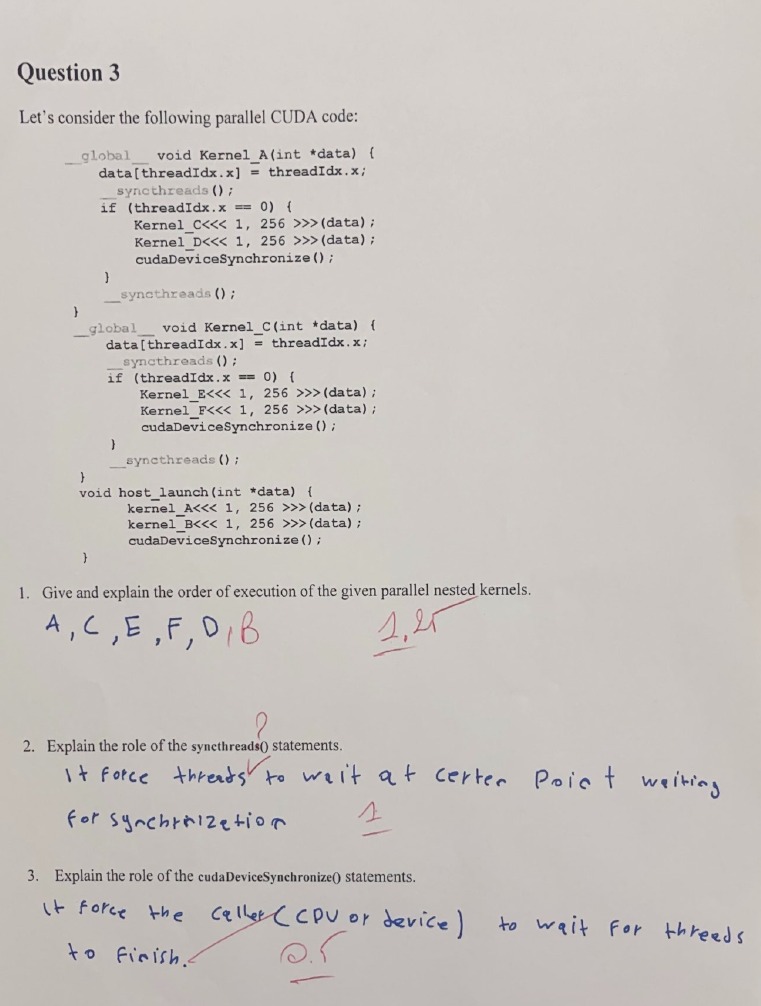 Question 3
Let's consider the following parallel CUDA code:
__global__ void Kernel_A(int *data) {
data[threadIdx.x] = threadIdx.x;
__syncthreads();
if (threadIdx.x == 0) {
Kernel_C<<< 1, 256 >>>(data);
Kernel_D<<< 1, 256 >>>(data);
cudaDeviceSynchronize();
}
__syncthreads();
}
__global__ void Kernel_C(int *data) {
data[threadIdx.x] = threadIdx.x;
__syncthreads();
if (threadIdx.x == 0) {
Kernel_E<<< 1, 256 >>>(data);
Kernel_F<<< 1, 256 >>>(data);
cudaDeviceSynchronize();
}
__syncthreads();
}
void host_launch(int *data) {
kernel_A<<< 1, 256 >>>(data);
kernel_B<<< 1, 256 >>>(data);
cudaDeviceSynchronize();
}
1. Give and explain the order of execution of the given parallel nested kernels.
A, C, E, F, D, B 1,25
?
2. Explain the role of the syncthreads() statements.
It force threads to wait at certen Point waiting
for synchrnization 1
3. Explain the role of the cudaDeviceSynchronize() statements.
It force the caller (CPU or device) to wait for threads
to finish. 0.5